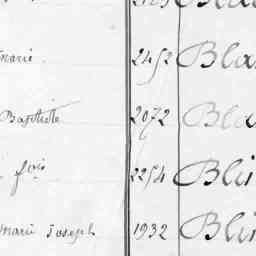 Marie 2452 Bla
Baptiste 2072 Bla
fois 2254 Bli
Marie Joseph 1932 Blin